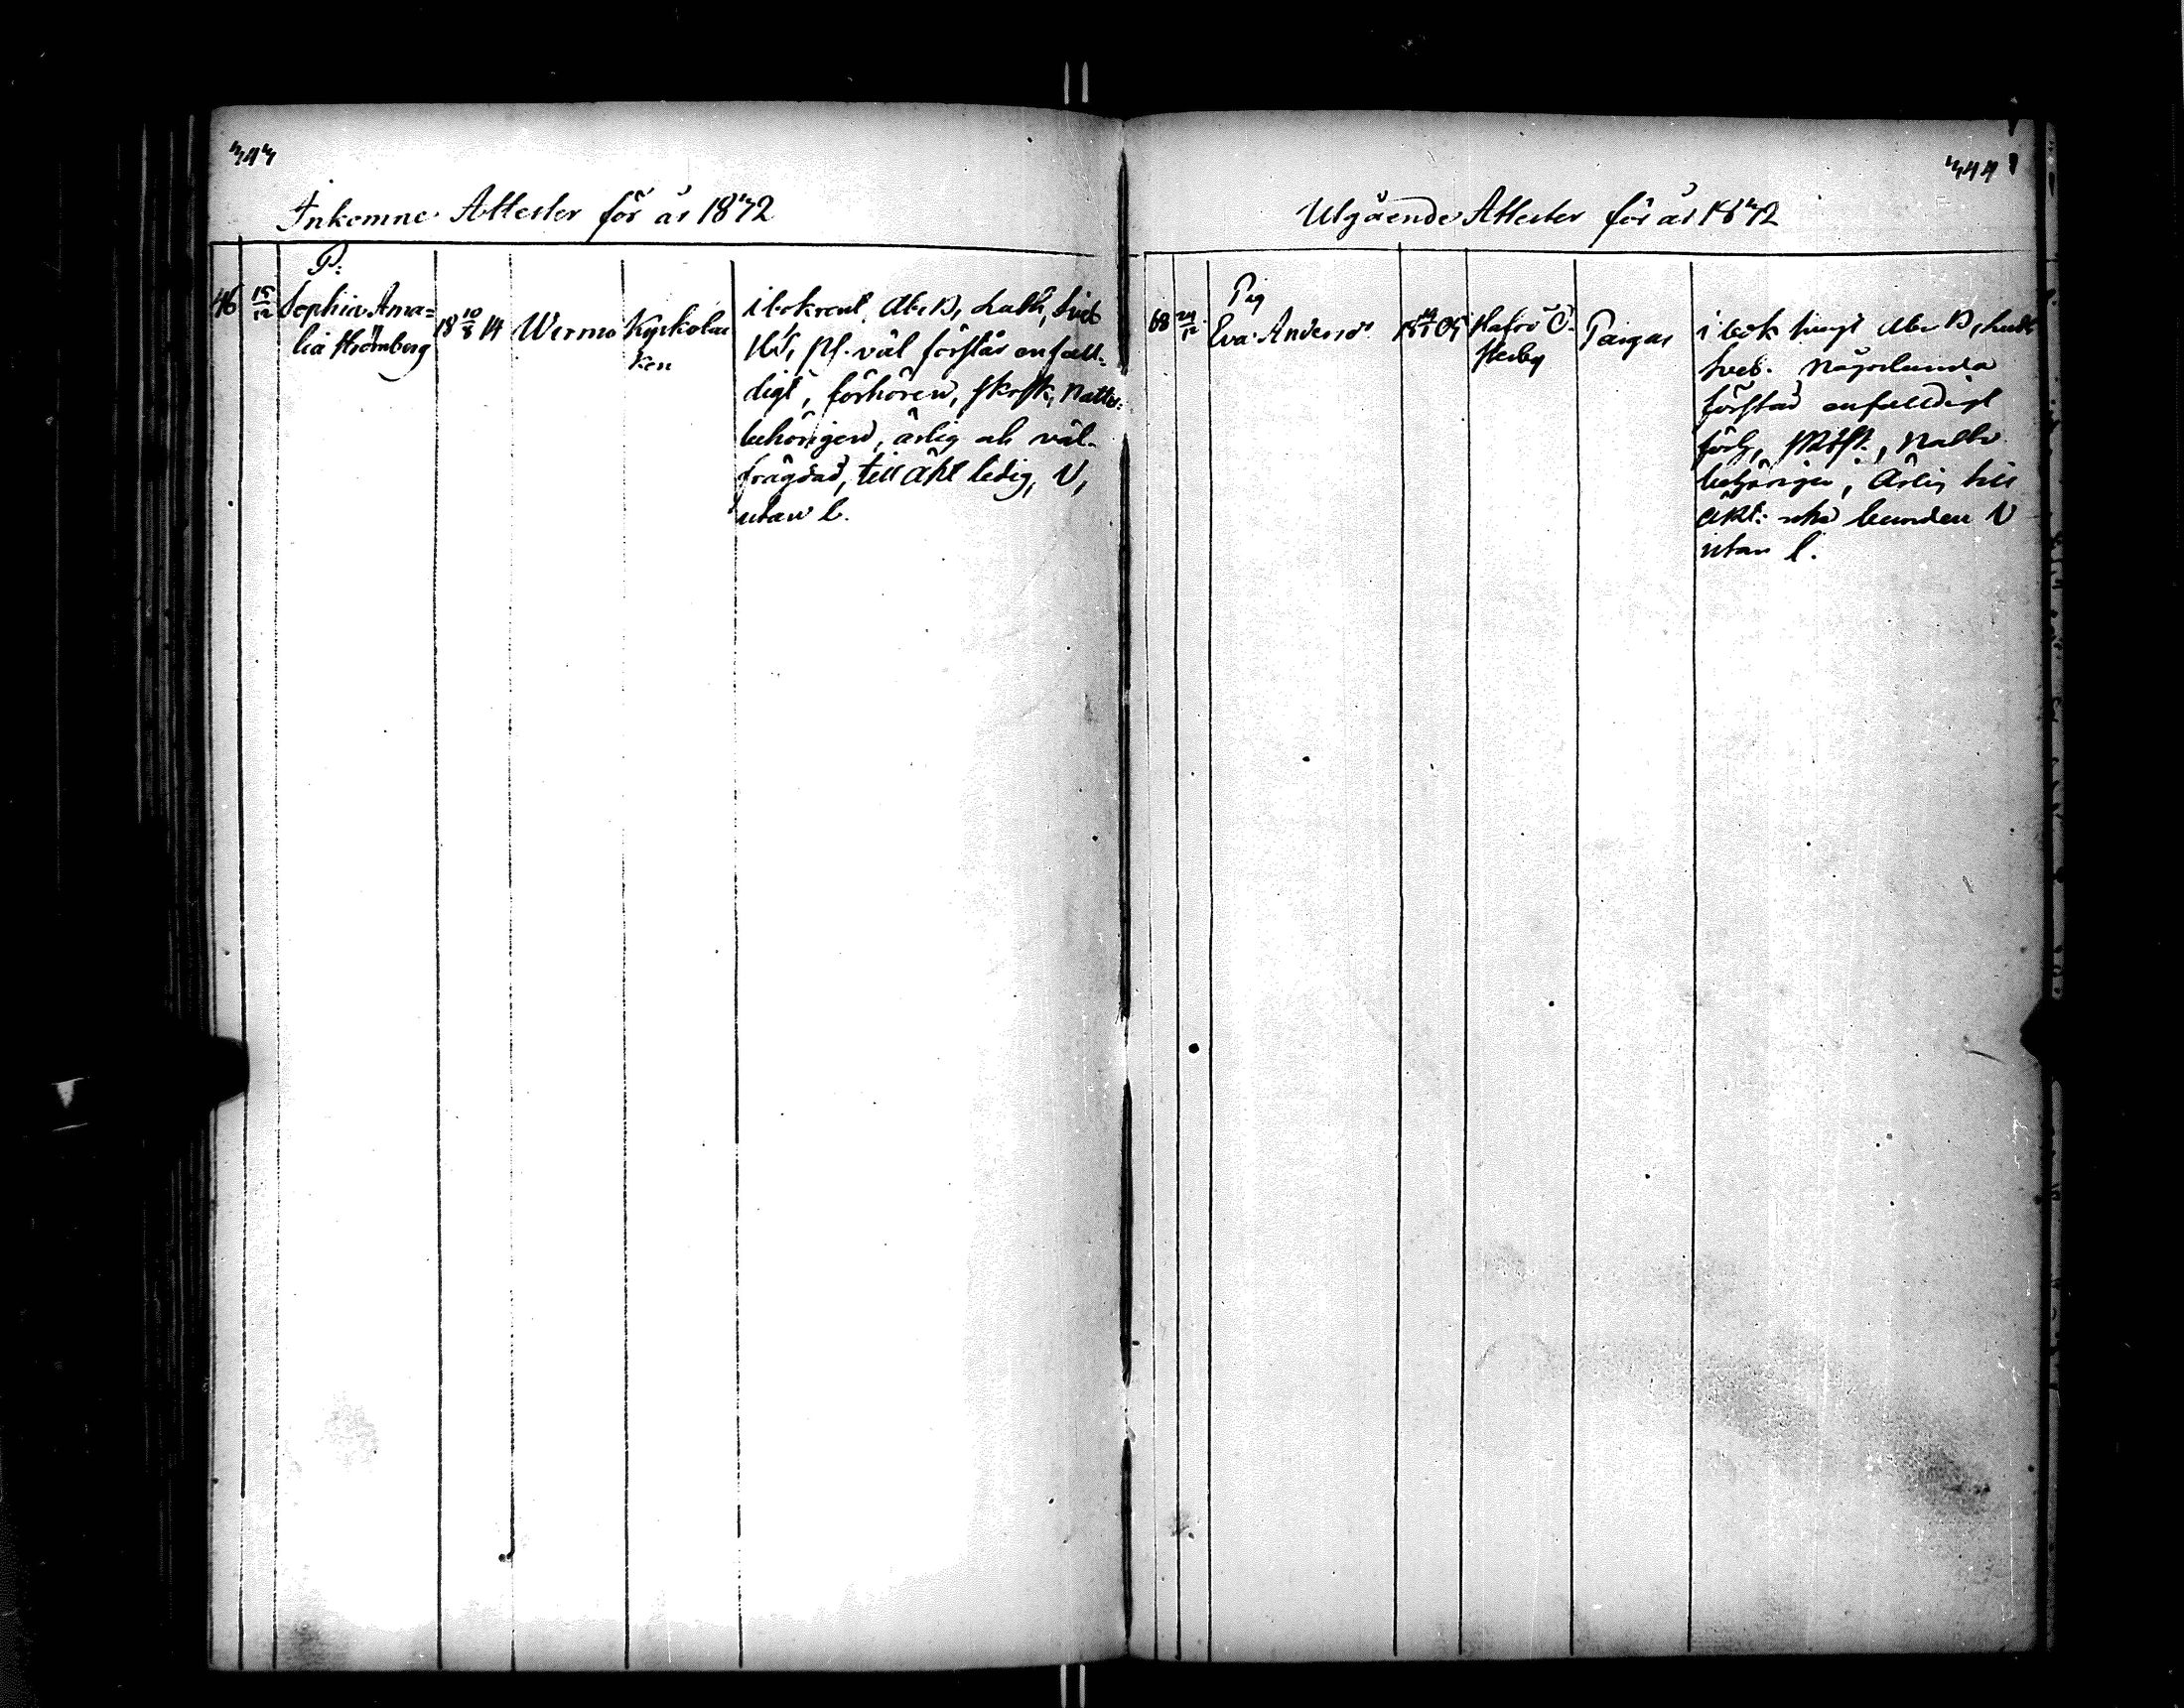 343
Inkomne Attester för år 1872
P:
46 15/12 Sophia Ama=
lia Strömberg
18 10/8 14 Wermo Kyrkobac
ken
i bok rent, Abc B, Luth, Sveb
väl förstår enfall-
digt, förhören, Nattv:
behörigen, ärlig och väl-
frägdad, till äkt ledig, V,
utan l.
344
Utgående Attester för år 1872
Pig
68 24/12 Eva Andersd
Pargas
i bok Abc B, Luth
Sveb. Någorlunda
förstår enfalldigt
förh, Nattv
behörigen, Ärlig till
äkt: icke bunden V
utan l.